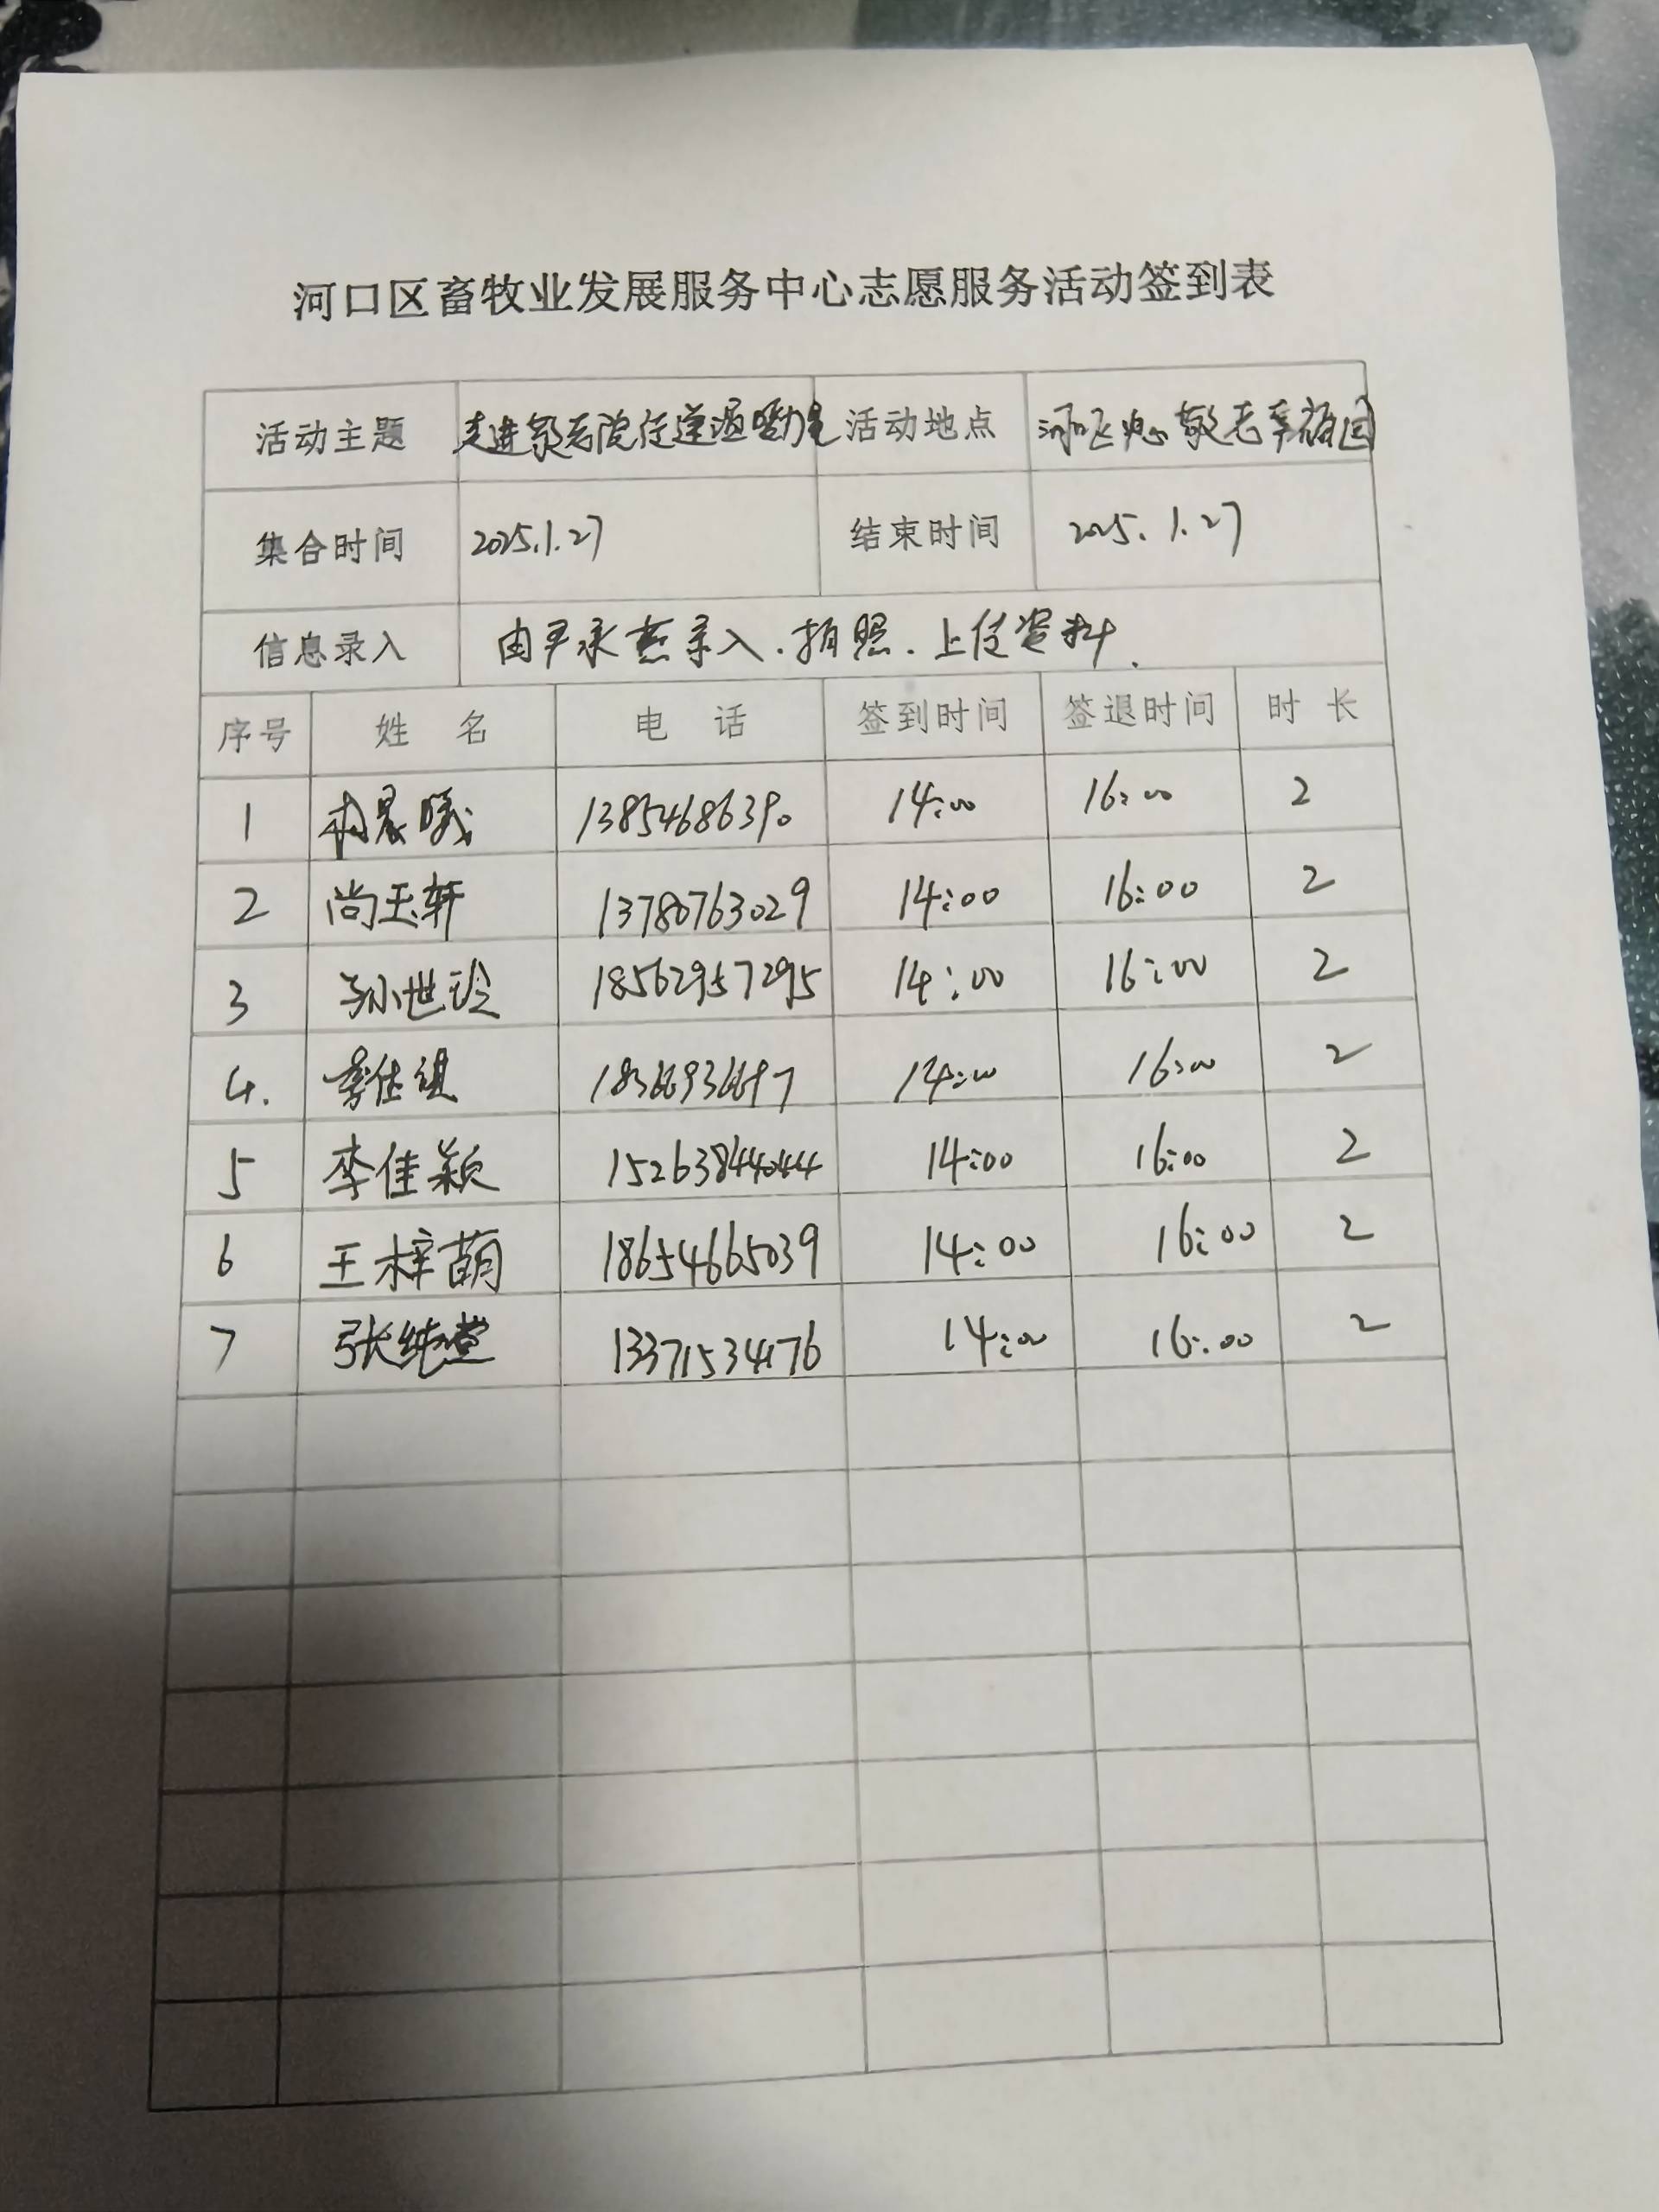 河口区畜牧业发展服务中心志愿服务活动签到表
活动主题 走进敬老院传递温暖力量 活动地点 河口区中心敬老幸福园
集合时间 2025.1.27 结束时间 2025.1.27
信息录入 由 永燕录入.拍照.上传资料.
序号 姓 名 电 话 签到时间 签退时间 时 长
1 晨曦 13854686390 14:00 16:00 2
2 尚玉轩 13780763029 14:00 16:00 2
3 孙世 18562957295 14:00 16:00 2
4. 李 14:00 16:00 2
5 李佳颖 15263844044 14:00 16:00 2
6 王梓萌 18654665039 14:00 16:00 2
7 张纯萱 13371534176 14:00 16:00 2